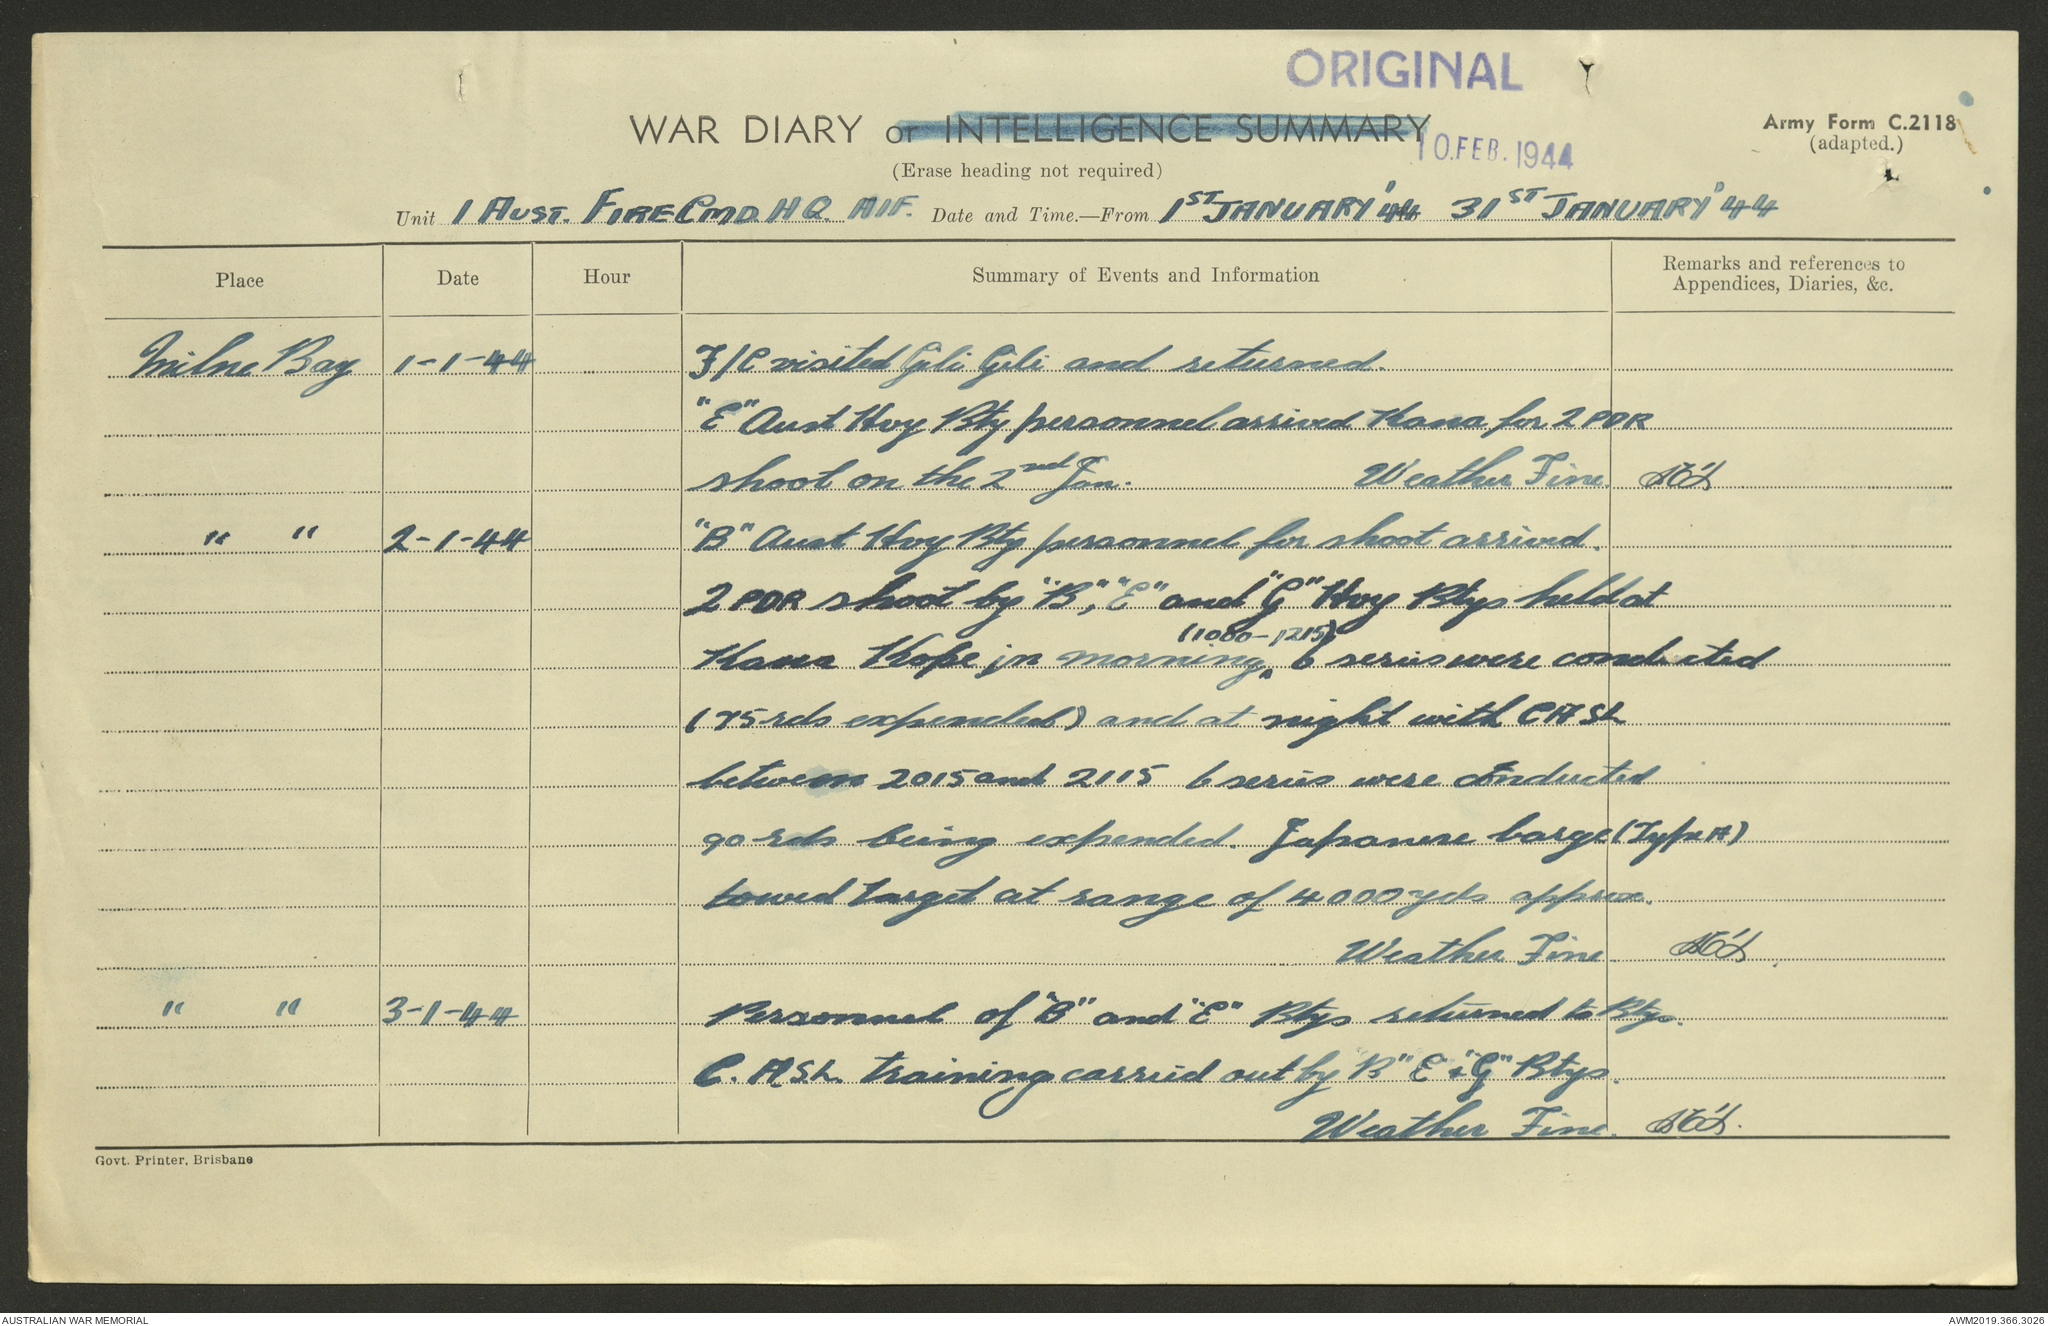 ORIGINAL
WAR DIARY or INTELLIGENCE SUMMARY
10 FEB. 1944
Army Form C.2118
(adapted.)
(Erase heading not required)
Unit 1 AUST. FIRE CMD HQ AIF. Date and Time.—From 1ST JANUARY '44 31ST JANUARY '44
Place Date Hour Summary of Events and Information Remarks and references to
Appendices, Diaries, &c.
Milne Bay 1-1-44 F/C visited Gili Gili and returned.
"E" Aust Hvy Bty personnel arrived Kana for 2 PDR
shoot on the 2nd Jan. Weather Fine.
" " 2-1-44 "B" Aust Hvy Bty personnel for shoot arrived.
2 PDR shoot by "B", "E" and "G" Hvy Btys held at
(1000-1215)
Kana Kope in morning, 6 series were conducted
(75 rds expended) and at night with CASL
between 2015 and 2115 6 series were conducted
90 rds being expended. Japanese barge (Type A)
towed target at range of 4000 yds approx.
Weather Fine.
" " 3-1-44 Personnel of "B" and "E" Btys returned to Btys.
C.A.S.L. training carried out by "B" "E" & "G" Btys.
Weather Fine.
Govt. Printer, Brisbane
AUSTRALIAN WAR MEMORIAL AWM2019.366.3026